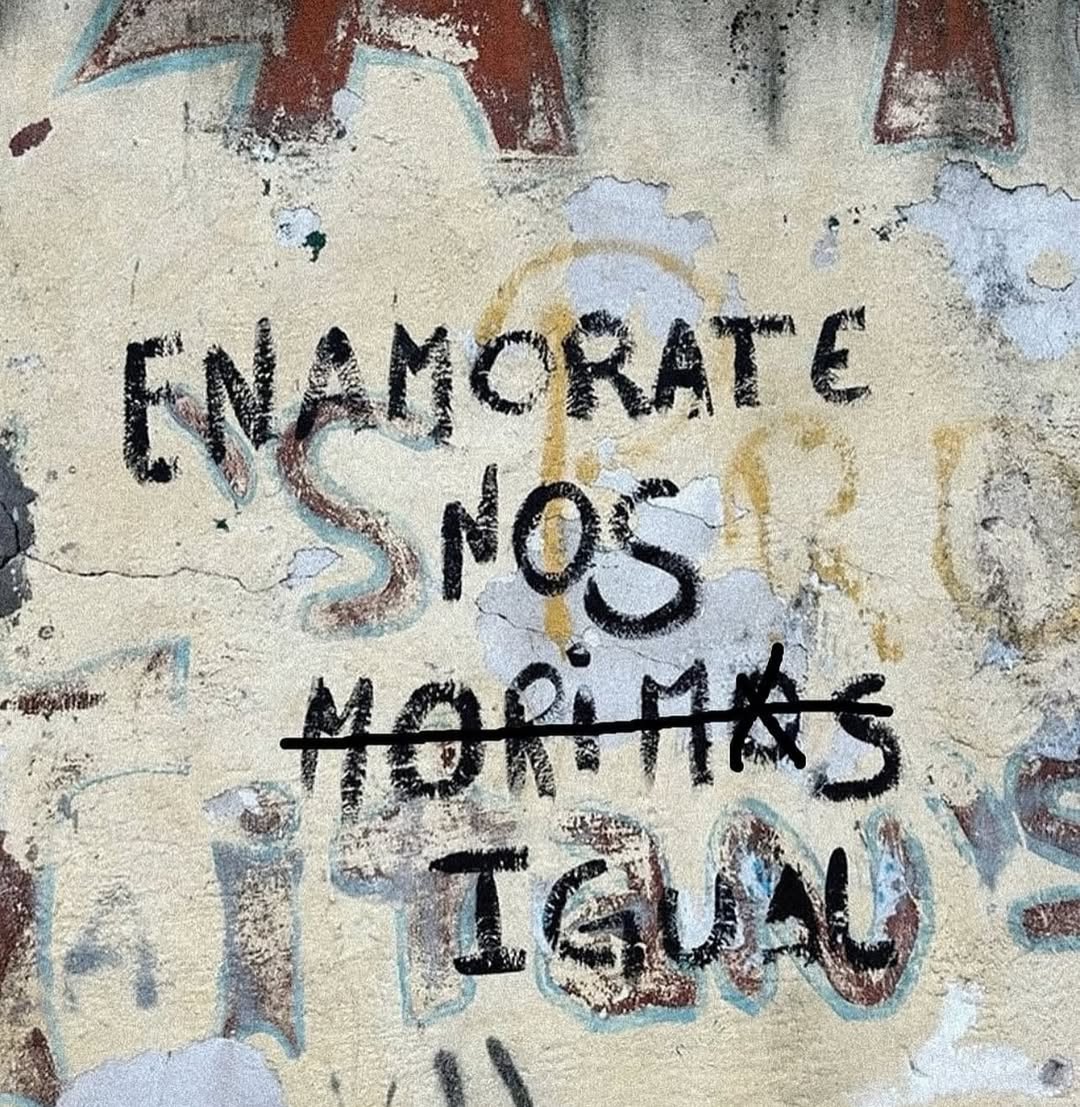 ENAMORATE
NOS
MORiMOS
IGUAL